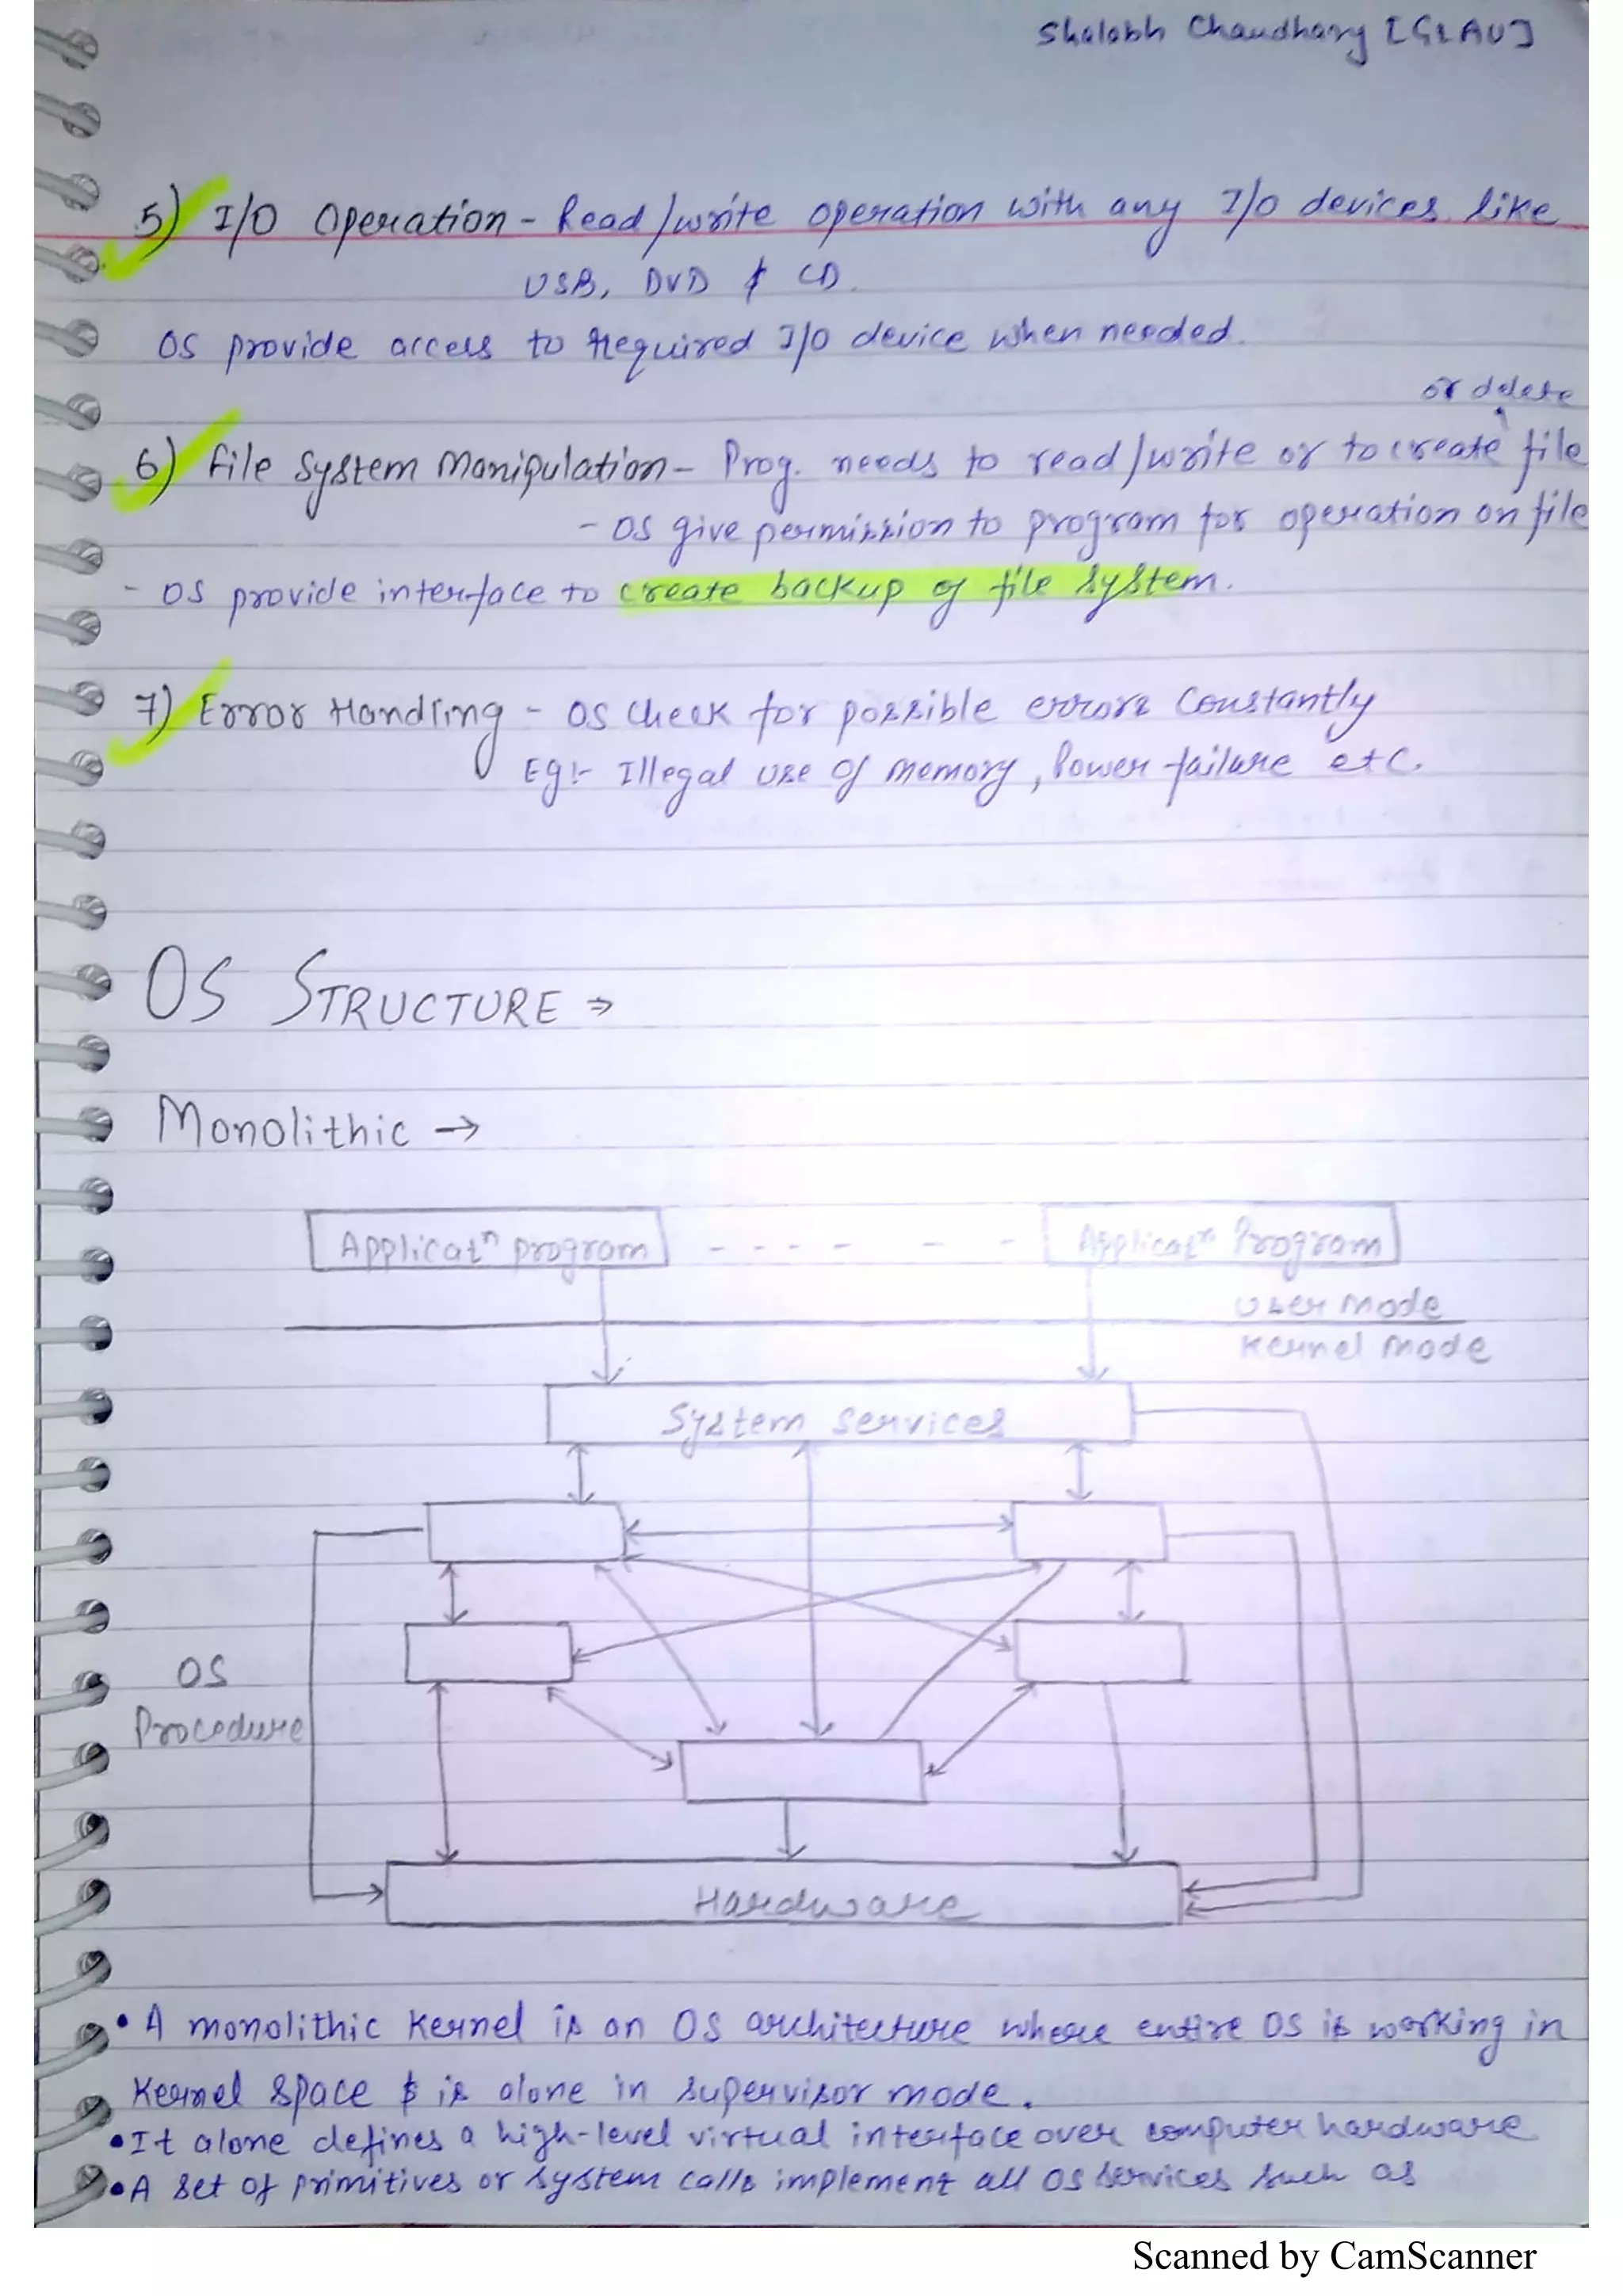 Shalabh Chaudhary [GLAU]
5) I/O Operation - Read/write operation with any I/O devices like
USB, DVD & CD.
OS provide access to required I/O device when needed.
or delete
6) File System Manipulation - Prog. needs to read/write or to create file
- OS give permission to program for operation on file
- OS provide interface to create backup of file system.
7) Error Handling - OS check for possible errors constantly
Eg:- Illegal use of memory, Power failure etc.
OS STRUCTURE ⇒
Monolithic →
Applicatⁿ program - - - - - - Applicatⁿ Program
User Mode
Kernel Mode
System Services
OS
Procedure
Hardware
• A monolithic Kernel is an OS architecture where entire OS is working in
Kernel space & is alone in supervisor mode.
• It alone defines a high-level virtual interface over computer hardware
• A set of primitives or system calls implement all OS services such as
Scanned by CamScanner